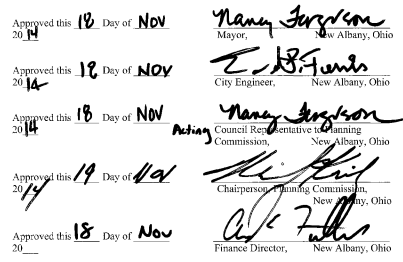 Approved this 18 Day of Nov Nancy Ferguson
2014 Mayor, New Albany, Ohio
Approved this 18 Day of NOV
2014 City Engineer, New Albany, Ohio
Approved this 18 Day of NOV Nancy Ferguson
2014 Acting Council Representative to Planning
Commission, New Albany, Ohio
Approved this 19 Day of Nov
2014 Chairperson, Planning Commission,
New Albany, Ohio
Approved this 18 Day of Nov
20 Finance Director, New Albany, Ohio